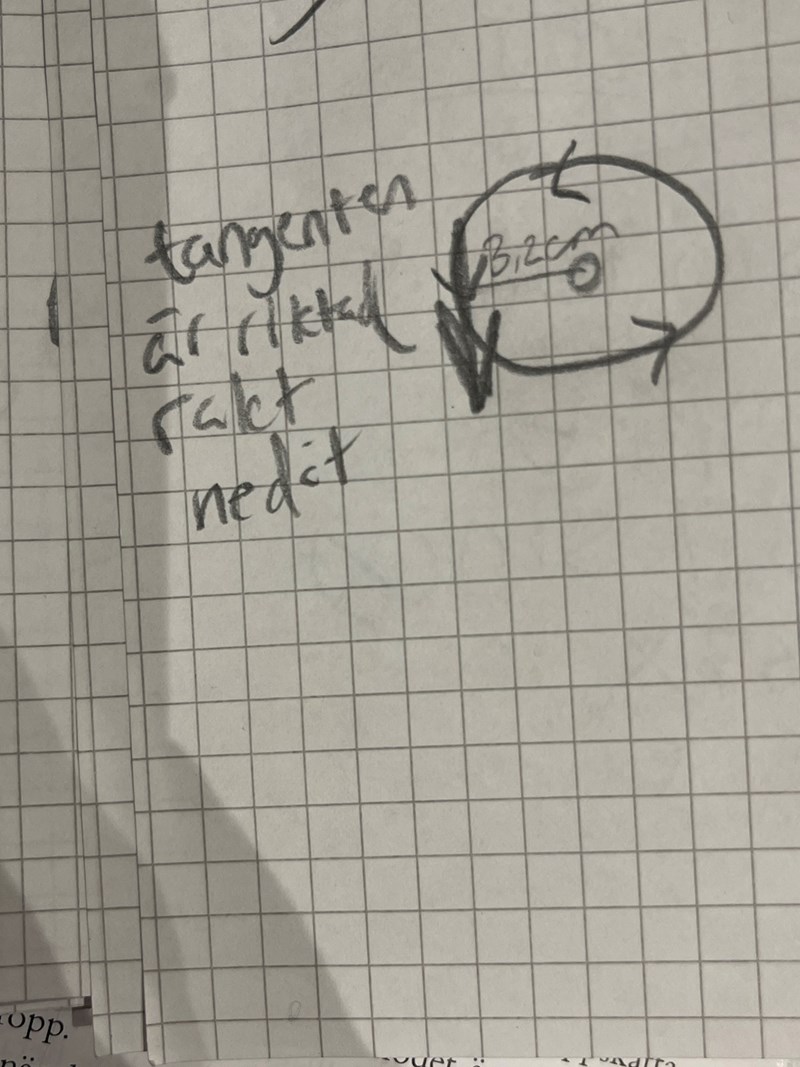 tangenten
är riktad
rakt
nedåt
3,2cm
opp.